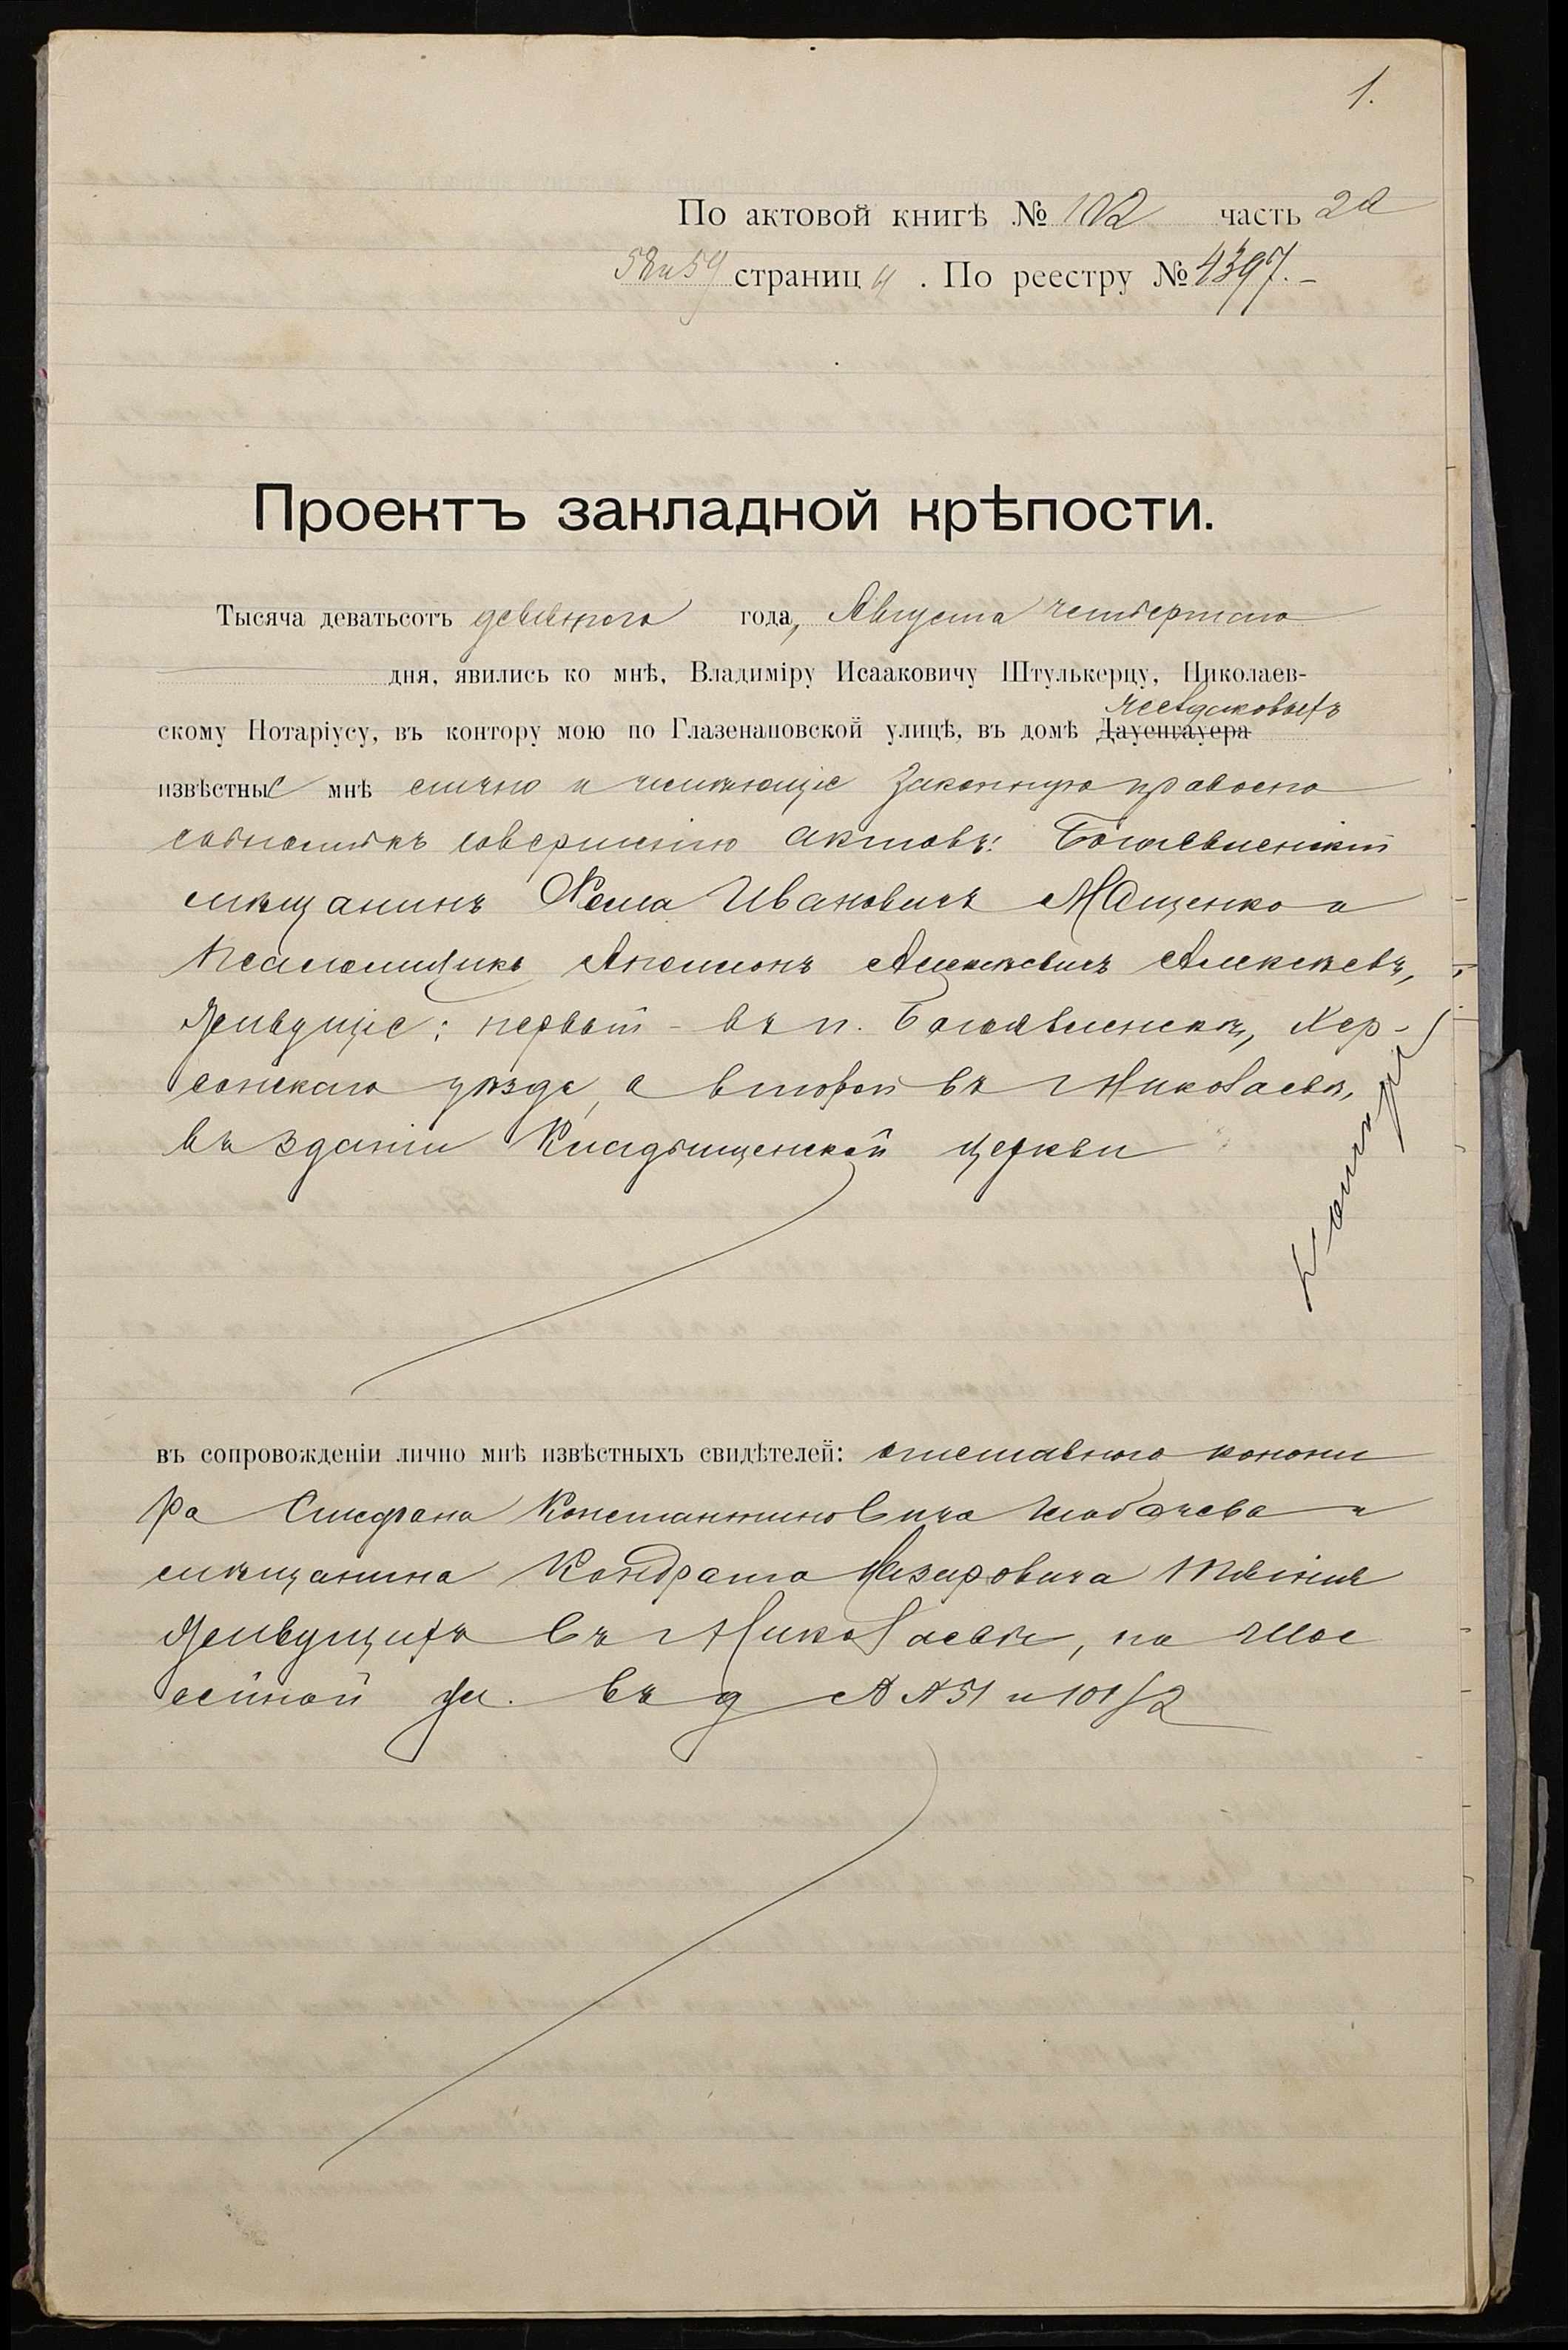 1.
По актовой книгѣ № 102 часть 2а
58 и 59 страниц ы. По реестру № 4397.-
Проектъ закладной крѣпости.
Тысяча деватьсотъ девятого года, Августа четвертаго
дня, явились ко мнѣ, Владиміру Исааковичу Штулькерцу, Николаев-
скому Нотаріусу, въ контору мою по Глазенаповской улицѣ, въ домѣ Дауенгауера
извѣстные мнѣ лично и имѣющіе законную правоспо
собность къ совершенію актовъ: Богоявленскій
мѣщанинъ Ѳома Ивановичъ Мащенко и
Псаломщикъ Антонъ Алексѣевичъ Алексѣевъ,
Живущіе: первый - въ п. Богоявленскѣ, Хер-
сонскаго уѣзда, а второй въ Николаевѣ,
въ зданіи Кладбищенской церкви
въ сопровожденіи лично мнѣ извѣстныхъ свидѣтелей: отставного канони
ра Стефана Константиновича и
мѣщанина Кондрата Назаровича
Живущихъ въ Николаевѣ, по Шос
сейной ул. въ д № № 51 и 101/2